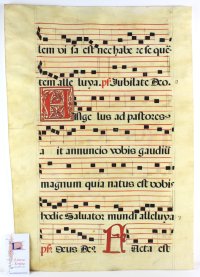 tem vi sa est nec habe re se quē
tem alle luya. ps Jubilate Deo.
Ange lus ad pastores
it annuncio vobis gaudiū
magnum quia natus est vobis
hodie Salvator mundi alleluya
ps Deus Facta est